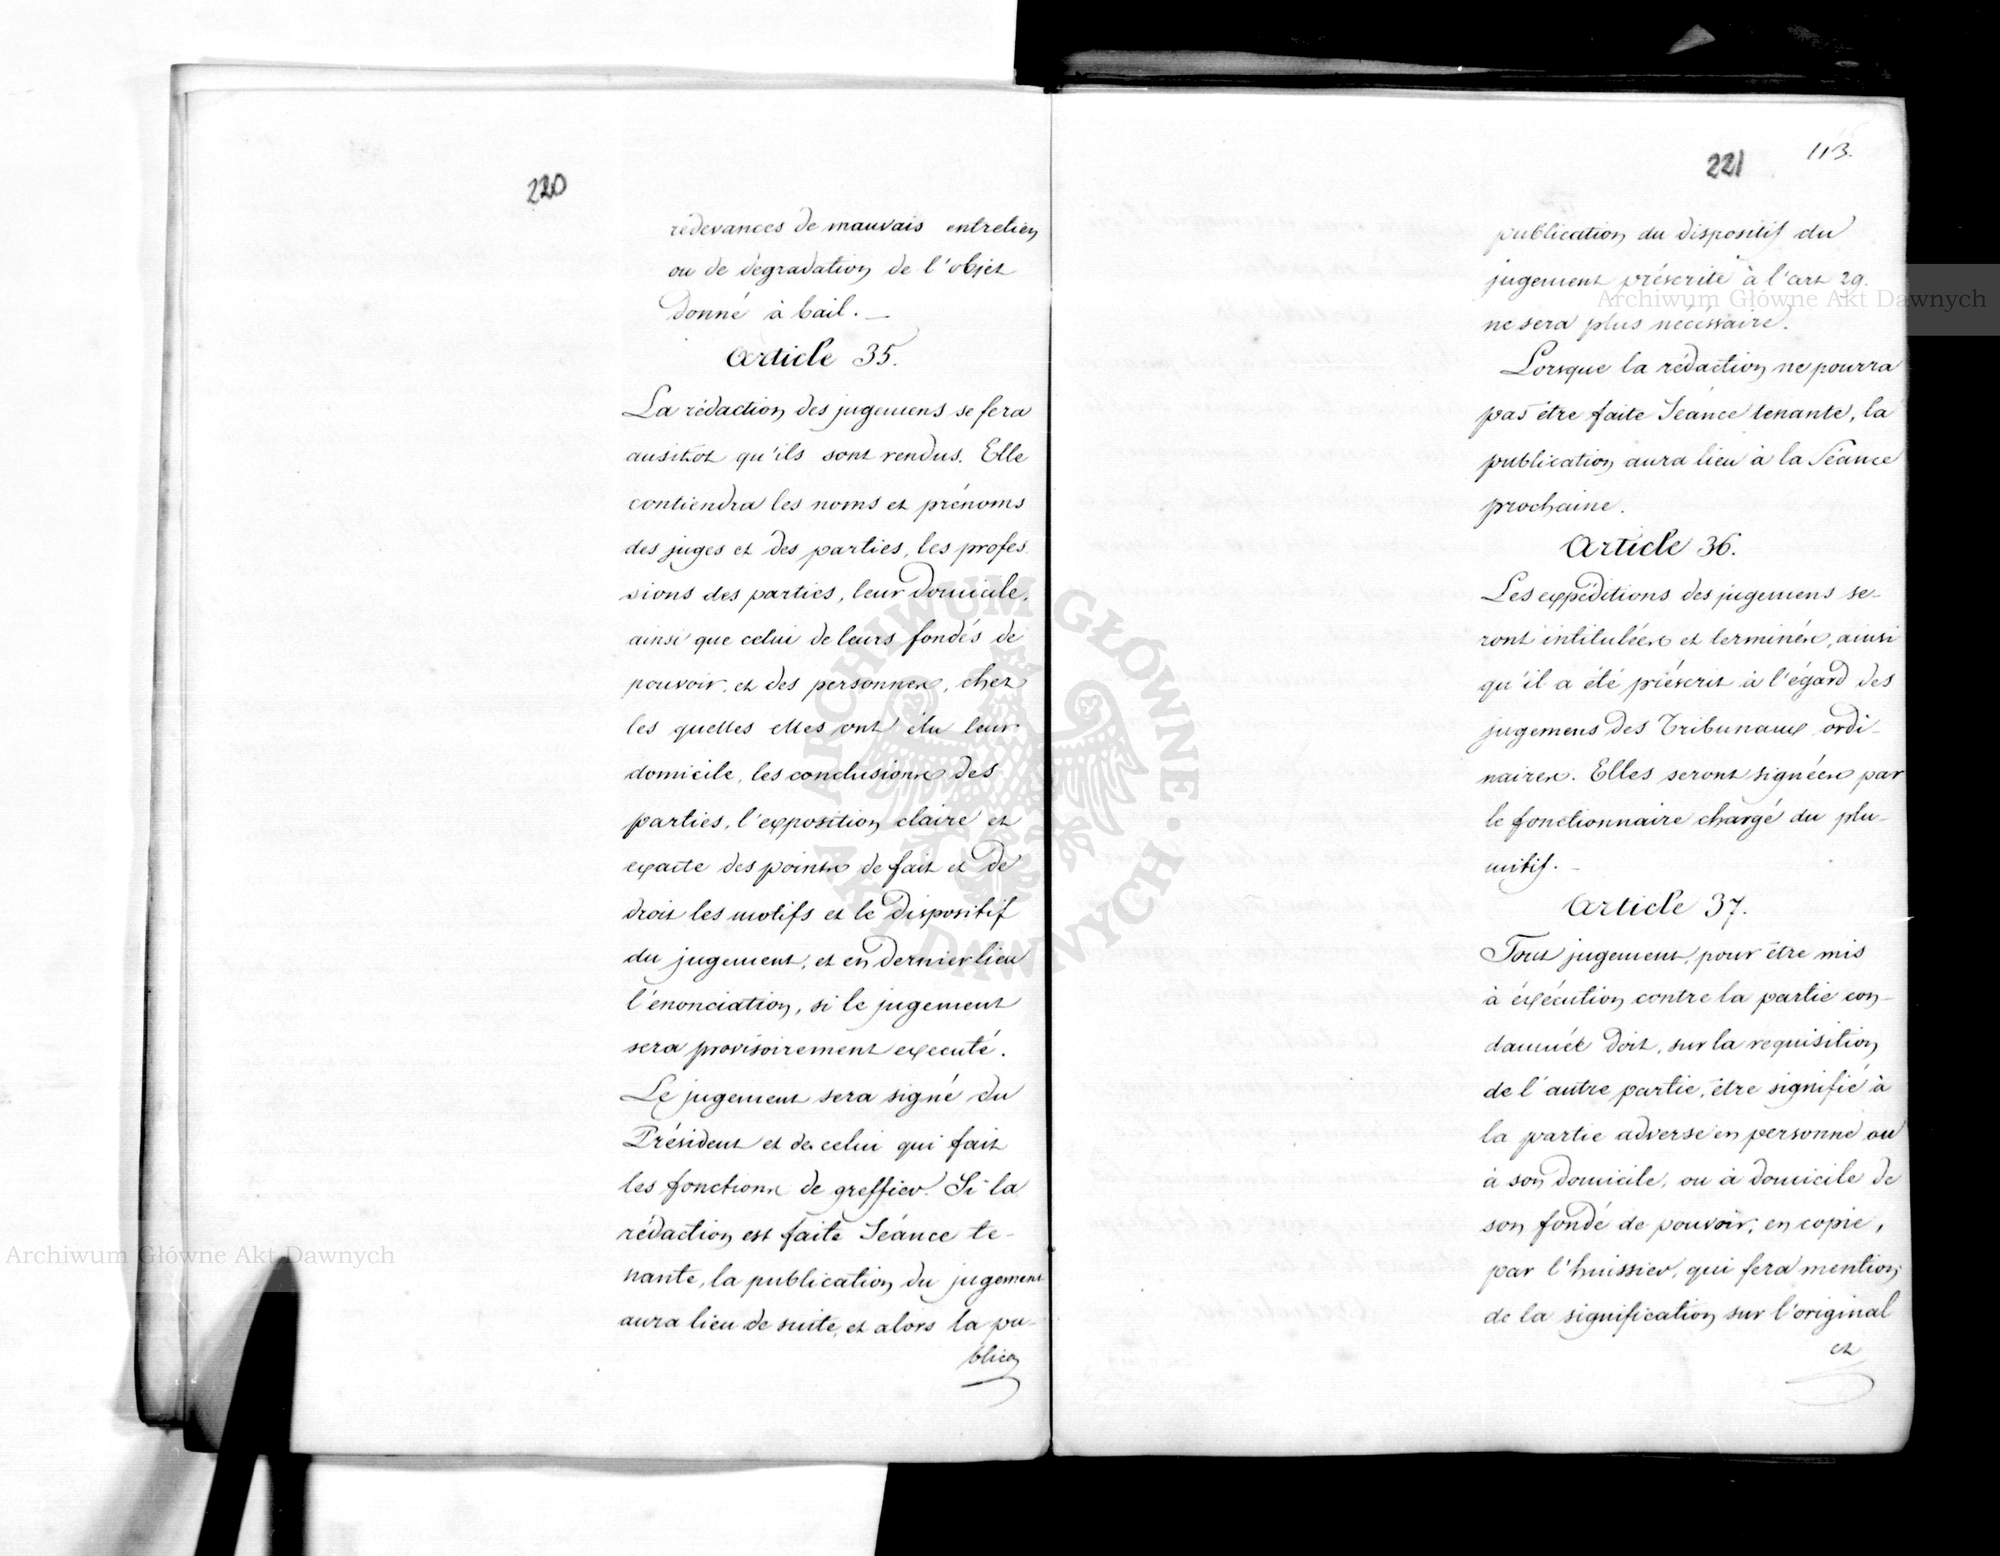 220
redevances de mauvais entretien
ou de dégradation de l'objet
donné à bail. —
Article 35.
La rédaction des jugemens se fera
ausitot qu'ils sont rendus. Elle
contiendra les noms et prénoms
des juges et des parties, les profes
sions des parties, leur domicile,
ainsi que celui de leurs fondés de
pouvoir, et des personnes, chez
les quelles elles ont élu leur
domicile, les conclusions des
parties, l'exposition claire et
exacte des points de fait et de
droit les motifs et le dispositif
du jugement, et en dernier lieu
l'énonciation, si le jugement
sera provisoirement executé.
Le jugement sera signé du
Président et de celui qui fait
les fonctions de greffier. Si la
rédaction est faite Séance te-
nante, la publication du jugement
aura lieu de suite, et alors la pu-
blicaon
221
113.
publication du dispositif du
jugement préscrite à l'art 29.
ne sera plus nécessaire.
Lorsque la rédaction ne pourra
pas être faite Séance tenante, la
publication aura lieu à la Séance
prochaine.
Article 36.
Les expéditions des jugemens se-
ront intitulées et terminées, ainsi
qu'il a été préscrit à l'égard des
jugemens des Tribunaux ordi-
naires. Elles seront signées par
le fonctionnaire chargé du plu-
mitif. -
Article 37.
Tout jugement, pour être mis
à éxécution contre la partie con-
damnée doit, sur la requisition
de l'autre partie, être signifié à
la partie adverse en personne ou
à son domicile, ou à domicile de
son fondé de pouvoir, en copie,
par l'huissier, qui fera mention
de la signification sur l'original
et
Archiwum Główne Akt Dawnych
Archiwum Główne Akt Dawnych
ARCHIWUM GŁÓWNE · AKT DAWNYCH ·